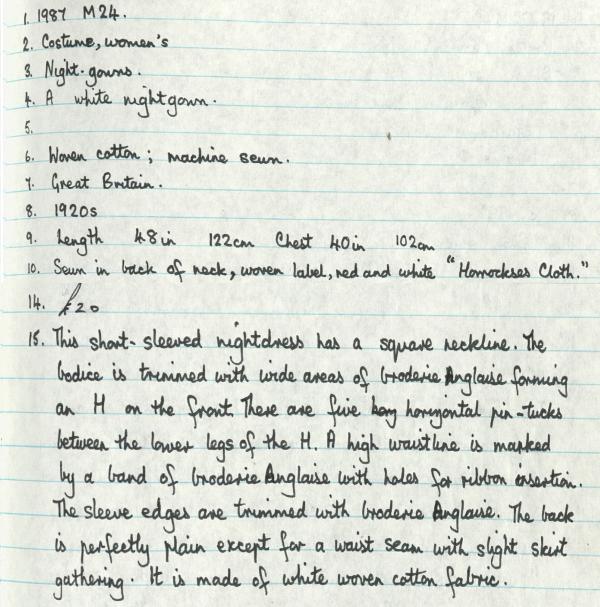 1. 1987 M24.
2. Costume, women's
3. Night-gowns.
4. A white nightgown.
5.
6. Woven cotton; machine sewn.
7. Great Britain.
8. 1920s
9. Length 48in 122cm Chest 40in 102cm
10. Sewn in back of neck, woven label, red and white "Horrockses Cloth."
14. £20
15. This short-sleeved nightdress has a square neckline. The
bodice is trimmed with wide areas of broderie Anglaise forming
an H on the front. There are five horizontal pin-tucks
between the lower legs of the H. A high waistline is marked
by a band of broderie Anglaise with holes for ribbon insertion.
The sleeve edges are trimmed with broderie Anglaise. The back
is perfectly plain except for a waist seam with slight skirt
gathering. It is made of white woven cotton fabric.